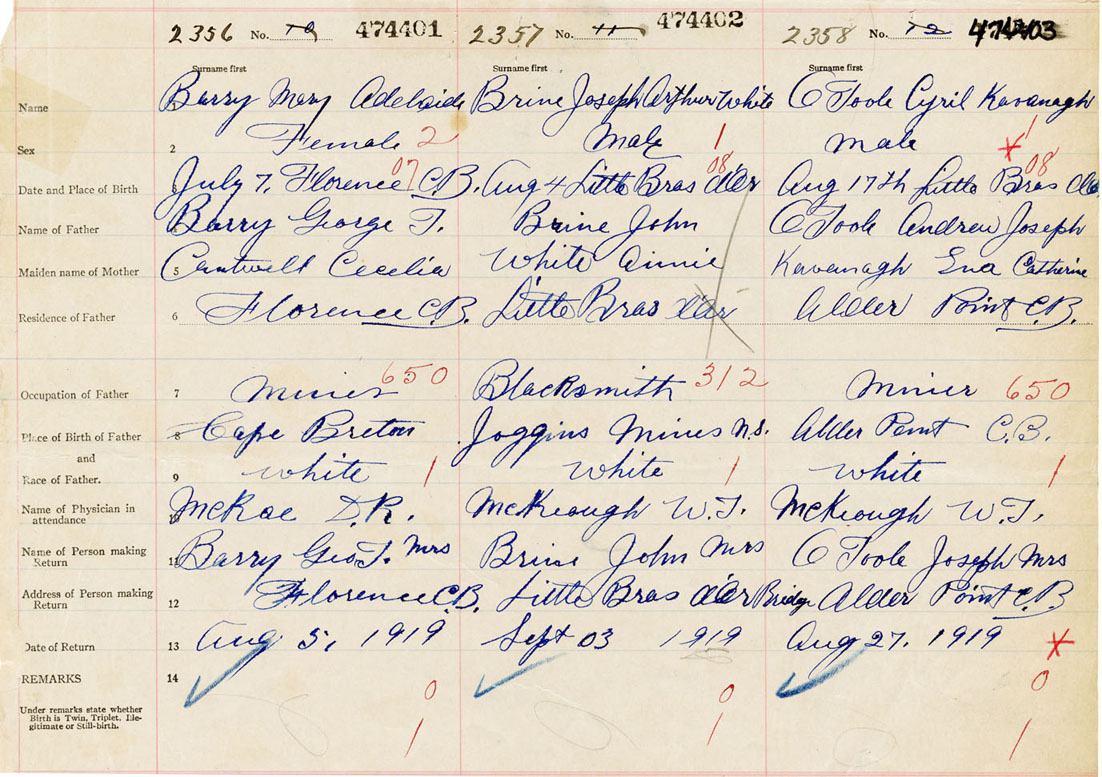 2356 No. 10 474401 2357 No. 11 474402 2358 No. 12 474403
Surname first Surname first Surname first
Name 1 Barry Mary Adelaide Brine Joseph Arthur White O Toole Cyril Kavanagh
Sex 2 Female 2 Male 1 male 1
07 08 08
Date and Place of Birth 3 July 7, Florence C.B. Aug 4 Little Bras d'Or Aug 17th Little Bras d'Or
Name of Father 4 Barry George T. Brine John O Toole Andrew Joseph
Maiden name of Mother 5 Cantwell Cecelia White Annie Kavanagh Ena Catherine
Residence of Father 6 Florence C.B. Little Bras d'Or Alder Point C.B.
Occupation of Father 7 Miner 650 Blacksmith 312 Miner 650
Place of Birth of Father 8 Cape Breton Joggins Mines N.S. Alder Point C.B.
and
Race of Father. 9 white 1 white 1 white 1
Name of Physician in
attendance 10 McRae D.R. McKeough W.T. McKeough W.T.
Name of Person making
Return 11 Barry Geo T. Mrs Brine John Mrs O Toole Joseph Mrs
Address of Person making
Return 12 Florence C.B. Little Bras d'Or Bridge Alder Point C.B
Date of Return 13 Aug 5, 1919 Sept 03 1919 Aug 27, 1919
REMARKS 14
0 0 0
Under remarks state whether
Birth is Twin, Triplet, Ille-
gitimate or Still-birth.
1 1 1